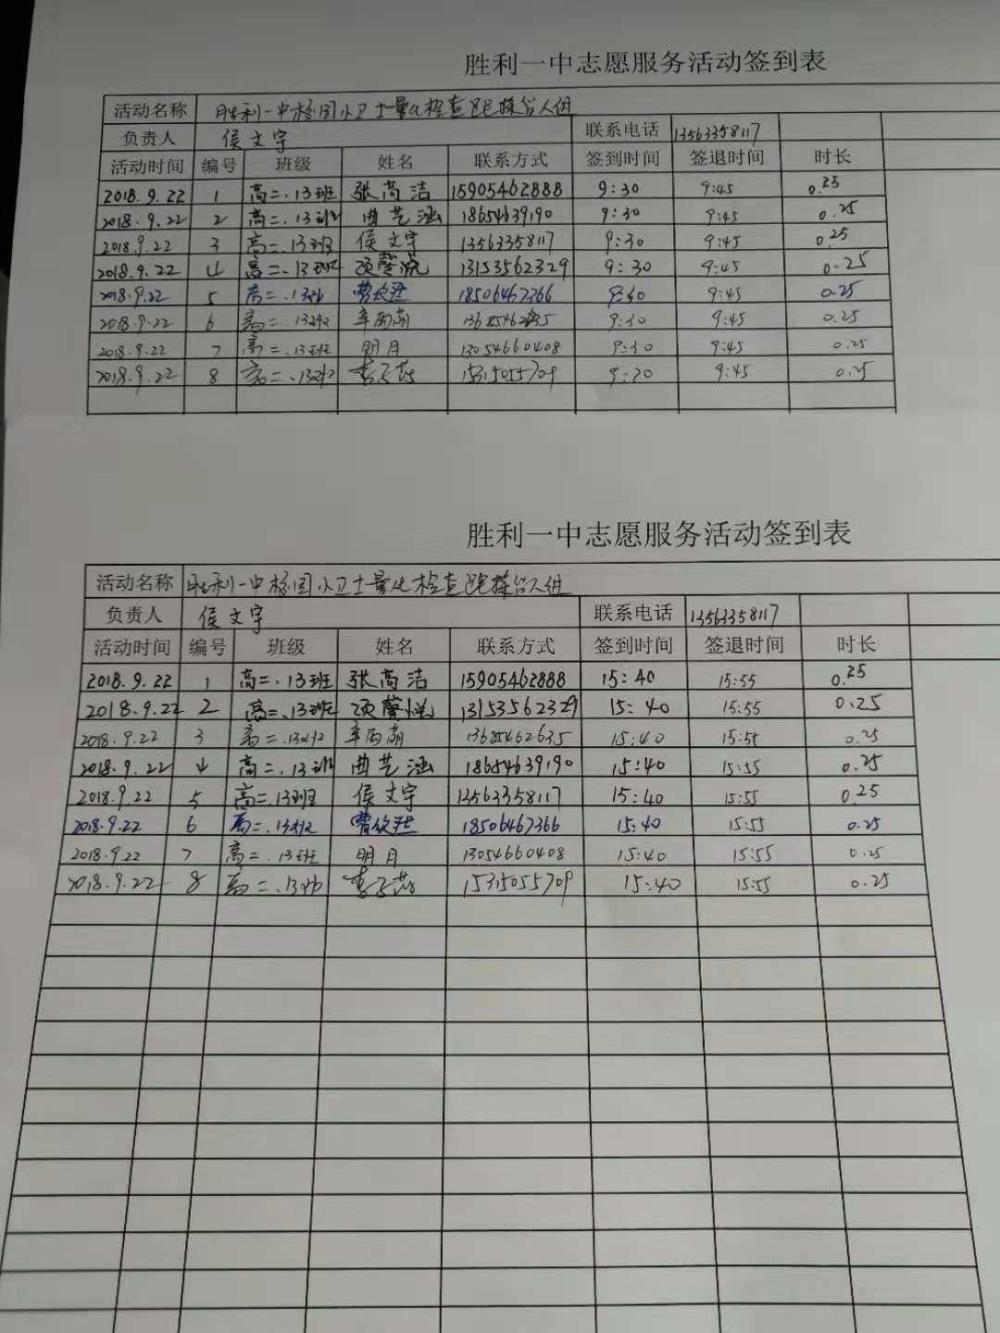 胜利一中志愿服务活动签到表
活动名称 胜利一中校园小卫士量化检查
负责人 侯文宇 联系电话 13563358117
活动时间 编号 班级 姓名 联系方式 签到时间 签退时间 时长
2018.9.22 1 高二.13班 张高洁 15905462888 9:30 9:45 0.25
2018.9.22 2 高二.13班 曲艺涵 18654639190 9:30 9:45 0.25
2018.9.22 3 高二.13班 侯文宇 13563358117 9:30 9:45 0.25
2018.9.22 4 高二.13班 13153562329 9:30 9:45 0.25
2018.9.22 5 高二.13班 18506467366 9:30 9:45 0.25
2018.9.22 6 高二.13班 9:30 9:45 0.25
2018.9.22 7 高二.13班 明月 13054660408 9:30 9:45 0.25
2018.9.22 8 高二.13班 15315055709 9:30 9:45 0.25
胜利一中志愿服务活动签到表
活动名称 胜利一中校园小卫士量化检查
负责人 侯文宇 联系电话 13563358117
活动时间 编号 班级 姓名 联系方式 签到时间 签退时间 时长
2018.9.22 1 高二.13班 张高洁 15905462888 15:40 15:55 0.25
2018.9.22 2 高二.13班 13153562329 15:40 15:55 0.25
2018.9.22 3 高二.13班 13685462635 15:40 15:55 0.25
2018.9.22 4 高二.13班 曲艺涵 18654639190 15:40 15:55 0.25
2018.9.22 5 高二.13班 侯文宇 13563358117 15:40 15:55 0.25
2018.9.22 6 高二.13班 18506467366 15:40 15:55 0.25
2018.9.22 7 高二.13班 明月 13054660408 15:40 15:55 0.25
2018.9.22 8 高二.13班 15315055709 15:40 15:55 0.25